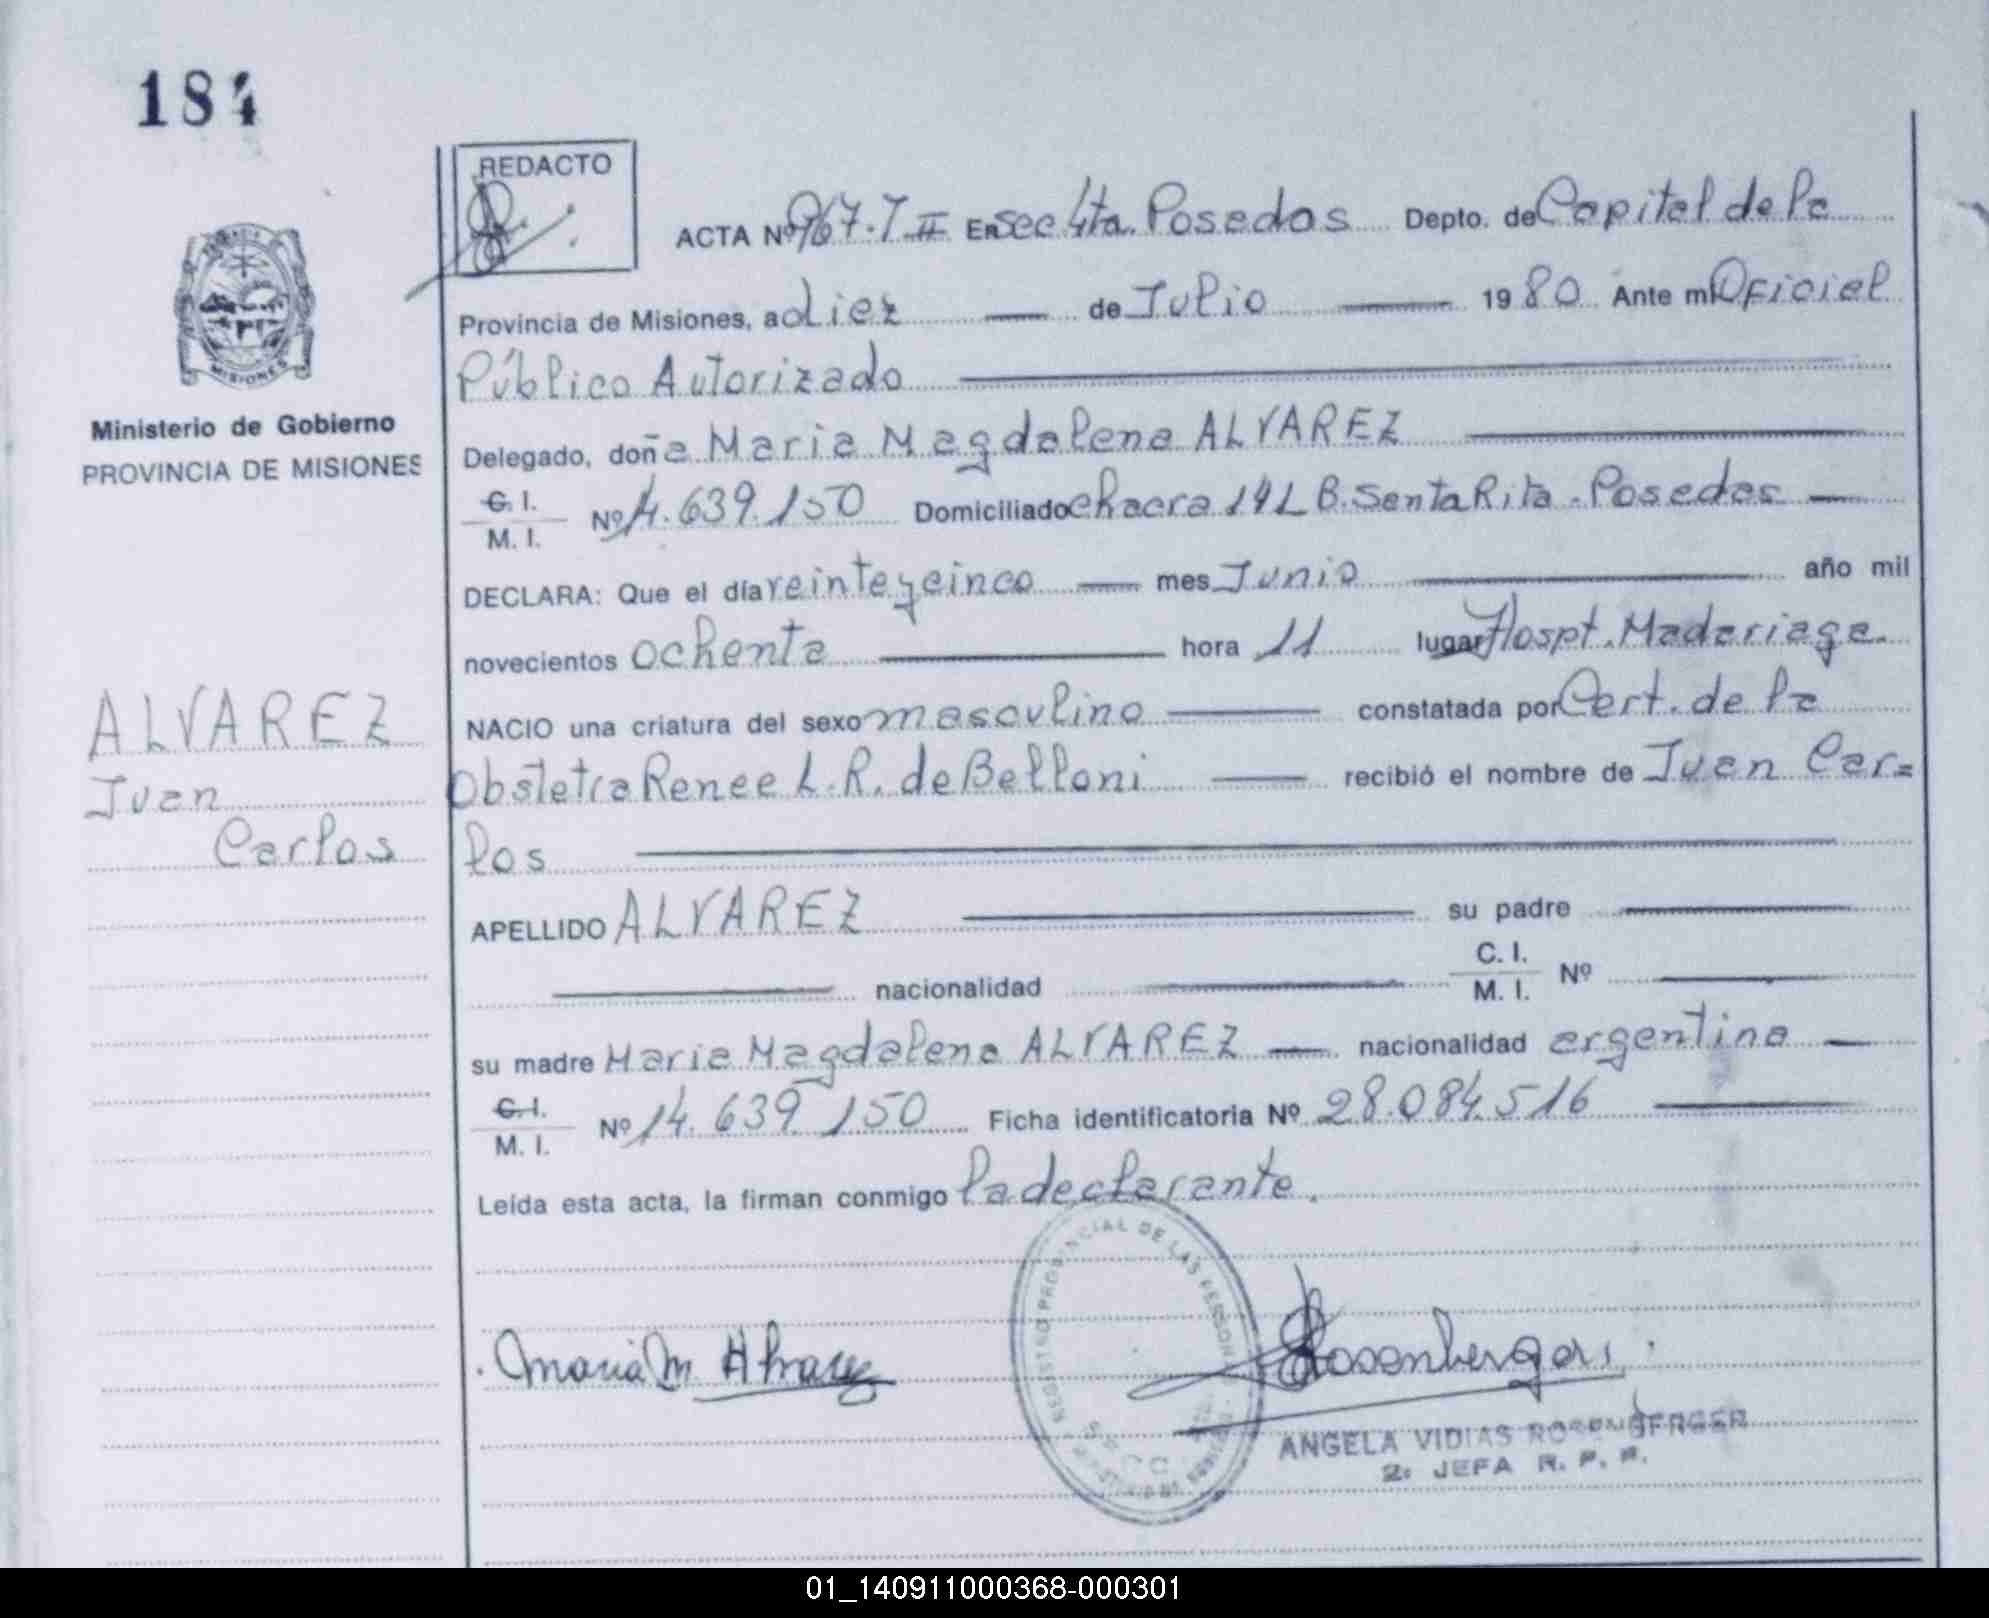 184
REDACTO
ACTA Nº 967.T II En Secc 4ta. Posadas Depto. de Capital de la
Provincia de Misiones, a diez de Julio 1980 Ante mí Oficial
Público Autorizado
Ministerio de Gobierno
PROVINCIA DE MISIONES
Delegado, doña Maria Magdalena ALVAREZ
C. I.
M. I. Nº 14.639.150 Domiciliado chacra 141 B. Santa Rita - Posadas
DECLARA: Que el día veinteycinco mes Junio año mil
novecientos ochenta hora 11 lugar Hospt. Madariaga.
NACIO una criatura del sexo masculino constatada por Cert. de la
Obstetra Renee L. R. de Belloni recibió el nombre de Juan Car=
los
ALVAREZ
Juan
Carlos
APELLIDO ALVAREZ su padre
nacionalidad C. I.
M. I. Nº
su madre Maria Magdalena ALVAREZ nacionalidad argentina
C. I.
M. I. Nº 14.639.150 Ficha identificatoria Nº 28.084.516
Leída esta acta, la firman conmigo la declarante.
REGISTRO PROVINCIAL DE LAS PERSON
SECC
Maria M Alvarez
Rosenberger
ANGELA VIDIAS ROSENBERGER
2: JEFA R. P. P.
01_140911000368-000301